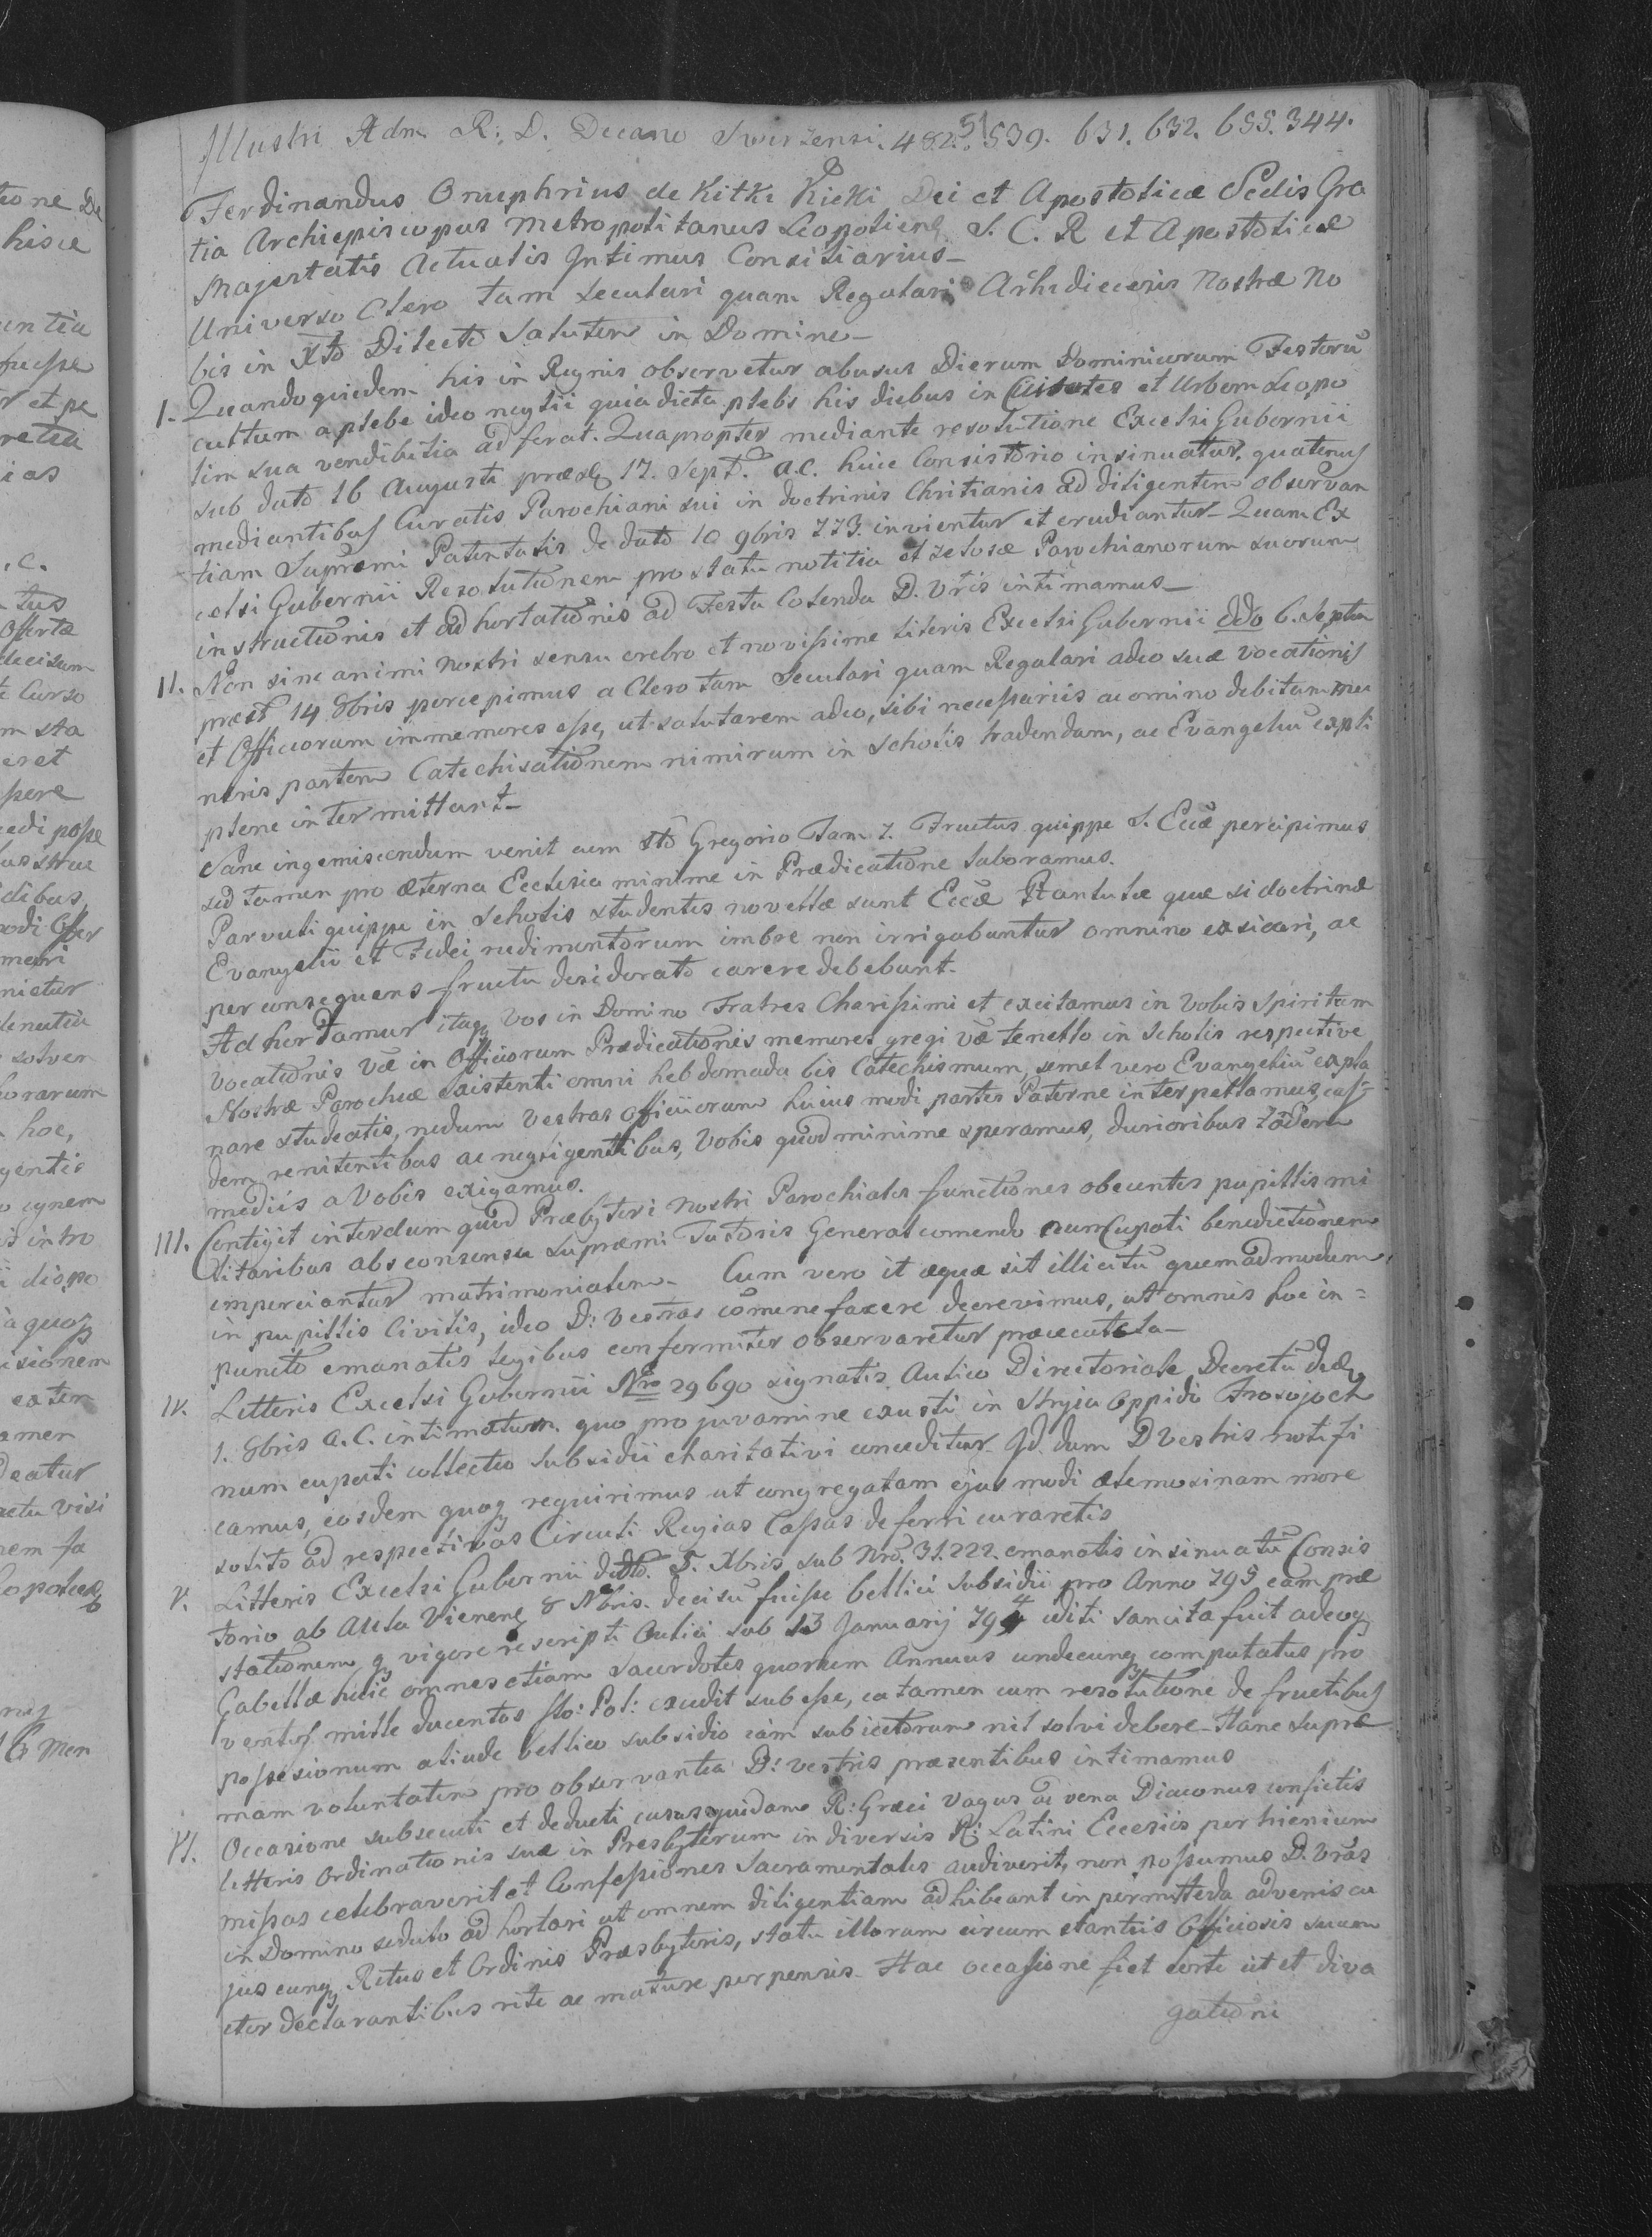 Illustri Adm R: D. Decano Swirzensi. 482. 51 539. 631. 632. 655. 344.
Ferdinandus Onuphrius de Kitki Kicki Dei et Apostolicæ Sedis Gra
tia Archiepiscopus Metropolitanus Leopolien S. C. R et Apostolicæ
Majestatis Actualis Intimus Consiliarius_
Universo Clero tam Seculari quam Regulari Arhidiecesis Nostræ No
bis in Xto Dilecto Salutem in Domine_
I. Quandoquidem his in Regnis observetur abusus Dierum Dominicorum Festorū
cultum a plebe ideo neglii quia dicta plebs his diebus in Civitates et Urbem Leopo
lim sua vendibilia adferat. Quapropter mediante resolutione Excelsi Gubernii
sub dato 16 Augusti præs 17. Sept. a.c. huic Consistorio insinuatur, quatenus
mediantibus Curatis Parochiani sui in doctrinis Chritianis ad diligentem observan
tiam Supremi Patentalis de dato 10 9bris 773. invientur et erudiantur_ Quam Ex
celsi Gubernii Resolutionem pro statu notitia et zelosæ Parochianorum suorum
instructionis et adhortationis ad Festa Colenda D. Vris intimamus_
II. Non sine animi Nostri sensu crebro et novissime literis Excelsi Gubernii ddo 6. Septem
præst 14 8bris percepimus a Clero tam Seculari quam Regulari adeo suæ vocationis
et Officiorum immemores esse, ut salutarem adeo, sibi necessariis ac omino debitam mu
neris partem Catechisationem nimirum in Scholis tradendam, ac Evangeliū expli
plene intermittant_
Sane ingemiscendum venit cum Sto Gregorio Fam 7. Fructus quippe S. Eccæ percipimus
sed tamen pro æterna Ecclesia minime in Prædicatione laboramus.
Parvuli quippe in Scholis studentes novellæ sunt Eccæ Plantulæ quæ si doctrinæ
Evangelii et Fidei rudimentorum imbre non irrigabuntur omnino exsicari, ac
per consequens fructu desiderato carere debebunt_
Adhortamur itaq vos in Domino Fratres Charissimi et excitamus in Vobis Spiritum
Vocationis Væ in Officiorum Prædicationis memores gregi væ tenello in Scholis respective
Nostræ Parochiæ Existenti omni hebdomada bis Catechismum, semel vero Evangeliū expla
nare studeatis, nedum Vestras Officiorum huius modi partes Paterne interpellamus, eas-
dem renitentibus ac negligentibus, Vobis quod minime speramus, durioribus
mediis a Vobis exigamus.
III. Contigit interdum quod Præbyteri Nostri Parochiales functiones obeuntes pupillis mi
litaribus abs consensu supræmi Tutoris General comendo nuncupati benedictionem
imperciantur matrimonialem_ Cum vero it æque sit illicitū quemadmodum
in pupillis Civilis, ideo D: Vestras comune facere decrevimus, ut omnis hoc in=
puncto emanatis legibus conformiter observaretur præcautela_
IV. Letteris Excelsi Gubernii Nro 29690 signatis Aulico Directoriale Decretū ded
1. 8bris A.C. intimatum quo pro juvamine exusti in Stryia Oppidi Frosojoch
num cupati collectio subsidii charitativi conceditur_ Id dum D Vestris notifi
camus, eosdem quoq requirimus ut congregatam ejus modi ælemosinam more
solito ad respectivas Circuli Regias Cassas deferri curaretis
V. Litteris Excelsi Gubernii ddto. 5. Xbris sub Nro. 31.222. emanatis insinuatū Consis
torio ab Aula Vienen 8 Nbris. decisū fuisse bellici Subsidii pro Anno 795 eam præ
stationem q vigore rescripti Aulici sub 13 Januarij 794 editi sancita fuit adeoq
Gabellæ huic omnes etiam Sacerdotes quorum Annuus undecunq computatus pro
ventus mille ducentos flo: Pol: excedit subesse, ea tamen cum resolutione de fructibus
possesionum aliude bellico subsidio eam subiectorum nil solvi debere_ Hanc supræ
mam voluntatem pro observantia D: vestris præsentibus intimamus
VI. Occasione subsecuti et deducti casus quidam R: Græci Vagus ac vena Diaconus confictis
letteris Ordinationis suæ in Presbyterum in diversis R: Latini Ecclesiis per hienium
missas celebraverit et Confessiones Sacramentales audiverit, non possumus D. Vras
in Domino sedulo adhortari ut omnem diligentiam adhibeant in permitteda advenis cu
jus cunq Ritus et Ordinis Præsbyteris, statu illorum circum stantiis Officiosis
eter declarantibus rite ac mature perpensis_ Hac occasione fiet certe ut et diva
gationi